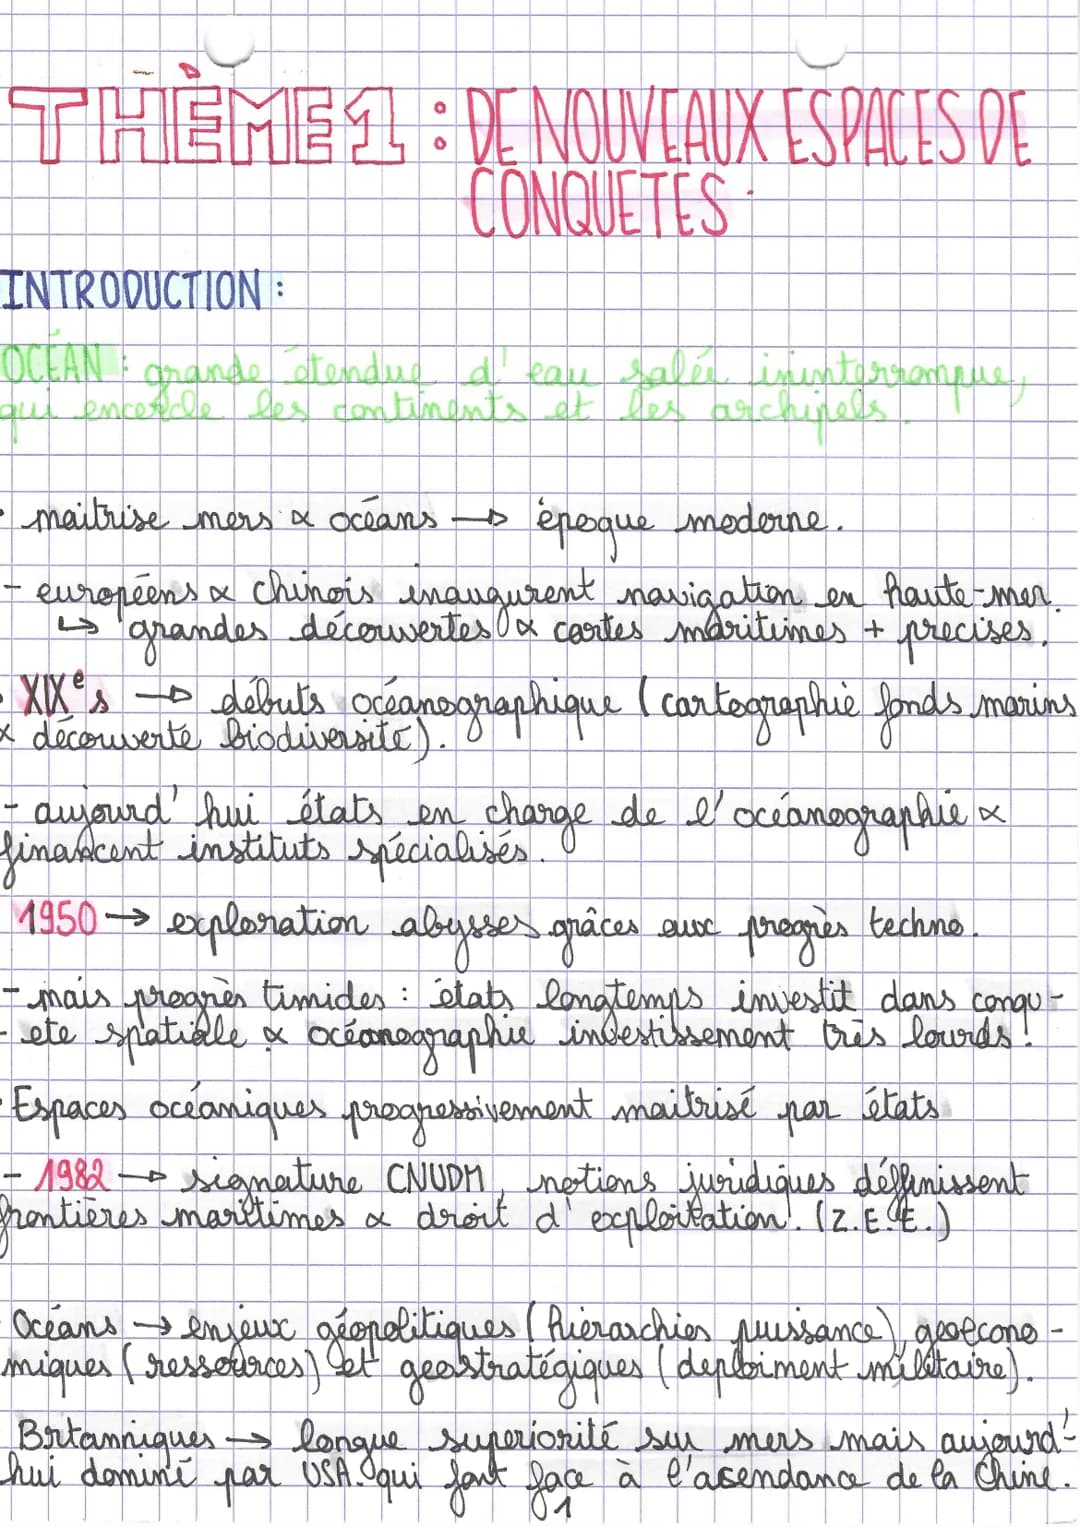 THÈME 1 : DE NOUVEAUX ESPACES DE
CONQUETES.
INTRODUCTION :
OCÉAN : grande étendue d'eau salée ininterrompue,
qui encercle les continents et les archipels.
• maitrise mers & océans → époque moderne.
- européens & chinois inaugurent navigation en haute-mer.
↳ grandes découvertes & cartes maritimes + precises.
• XIXe s → débuts océanographique (cartographie fonds marins
& découverte biodiversité).
- aujourd'hui états en charge de l'océanographie &
financent instituts spécialisés.
1950 → exploration abysses grâces aux progrès techno.
- mais progrès timides : états longtemps investit dans conqu-
- ete spatiale & océanographie investissement très lourds !
• Espaces océaniques progressivement maitrisé par états
- 1982 → signature CNUDM, notions juridiques déffinissent
frontières maritimes & droit d'exploitation. (Z.E.E.)
Océans → enjeux géopolitiques (hiérarchies puissance), geoécono-
miques (ressources) et geostratégiques (deploiment militaire).
Britanniques → longue superiorité sur mers mais aujourd'-
hui dominé par USA qui font face à l'asendance de la Chine.
1